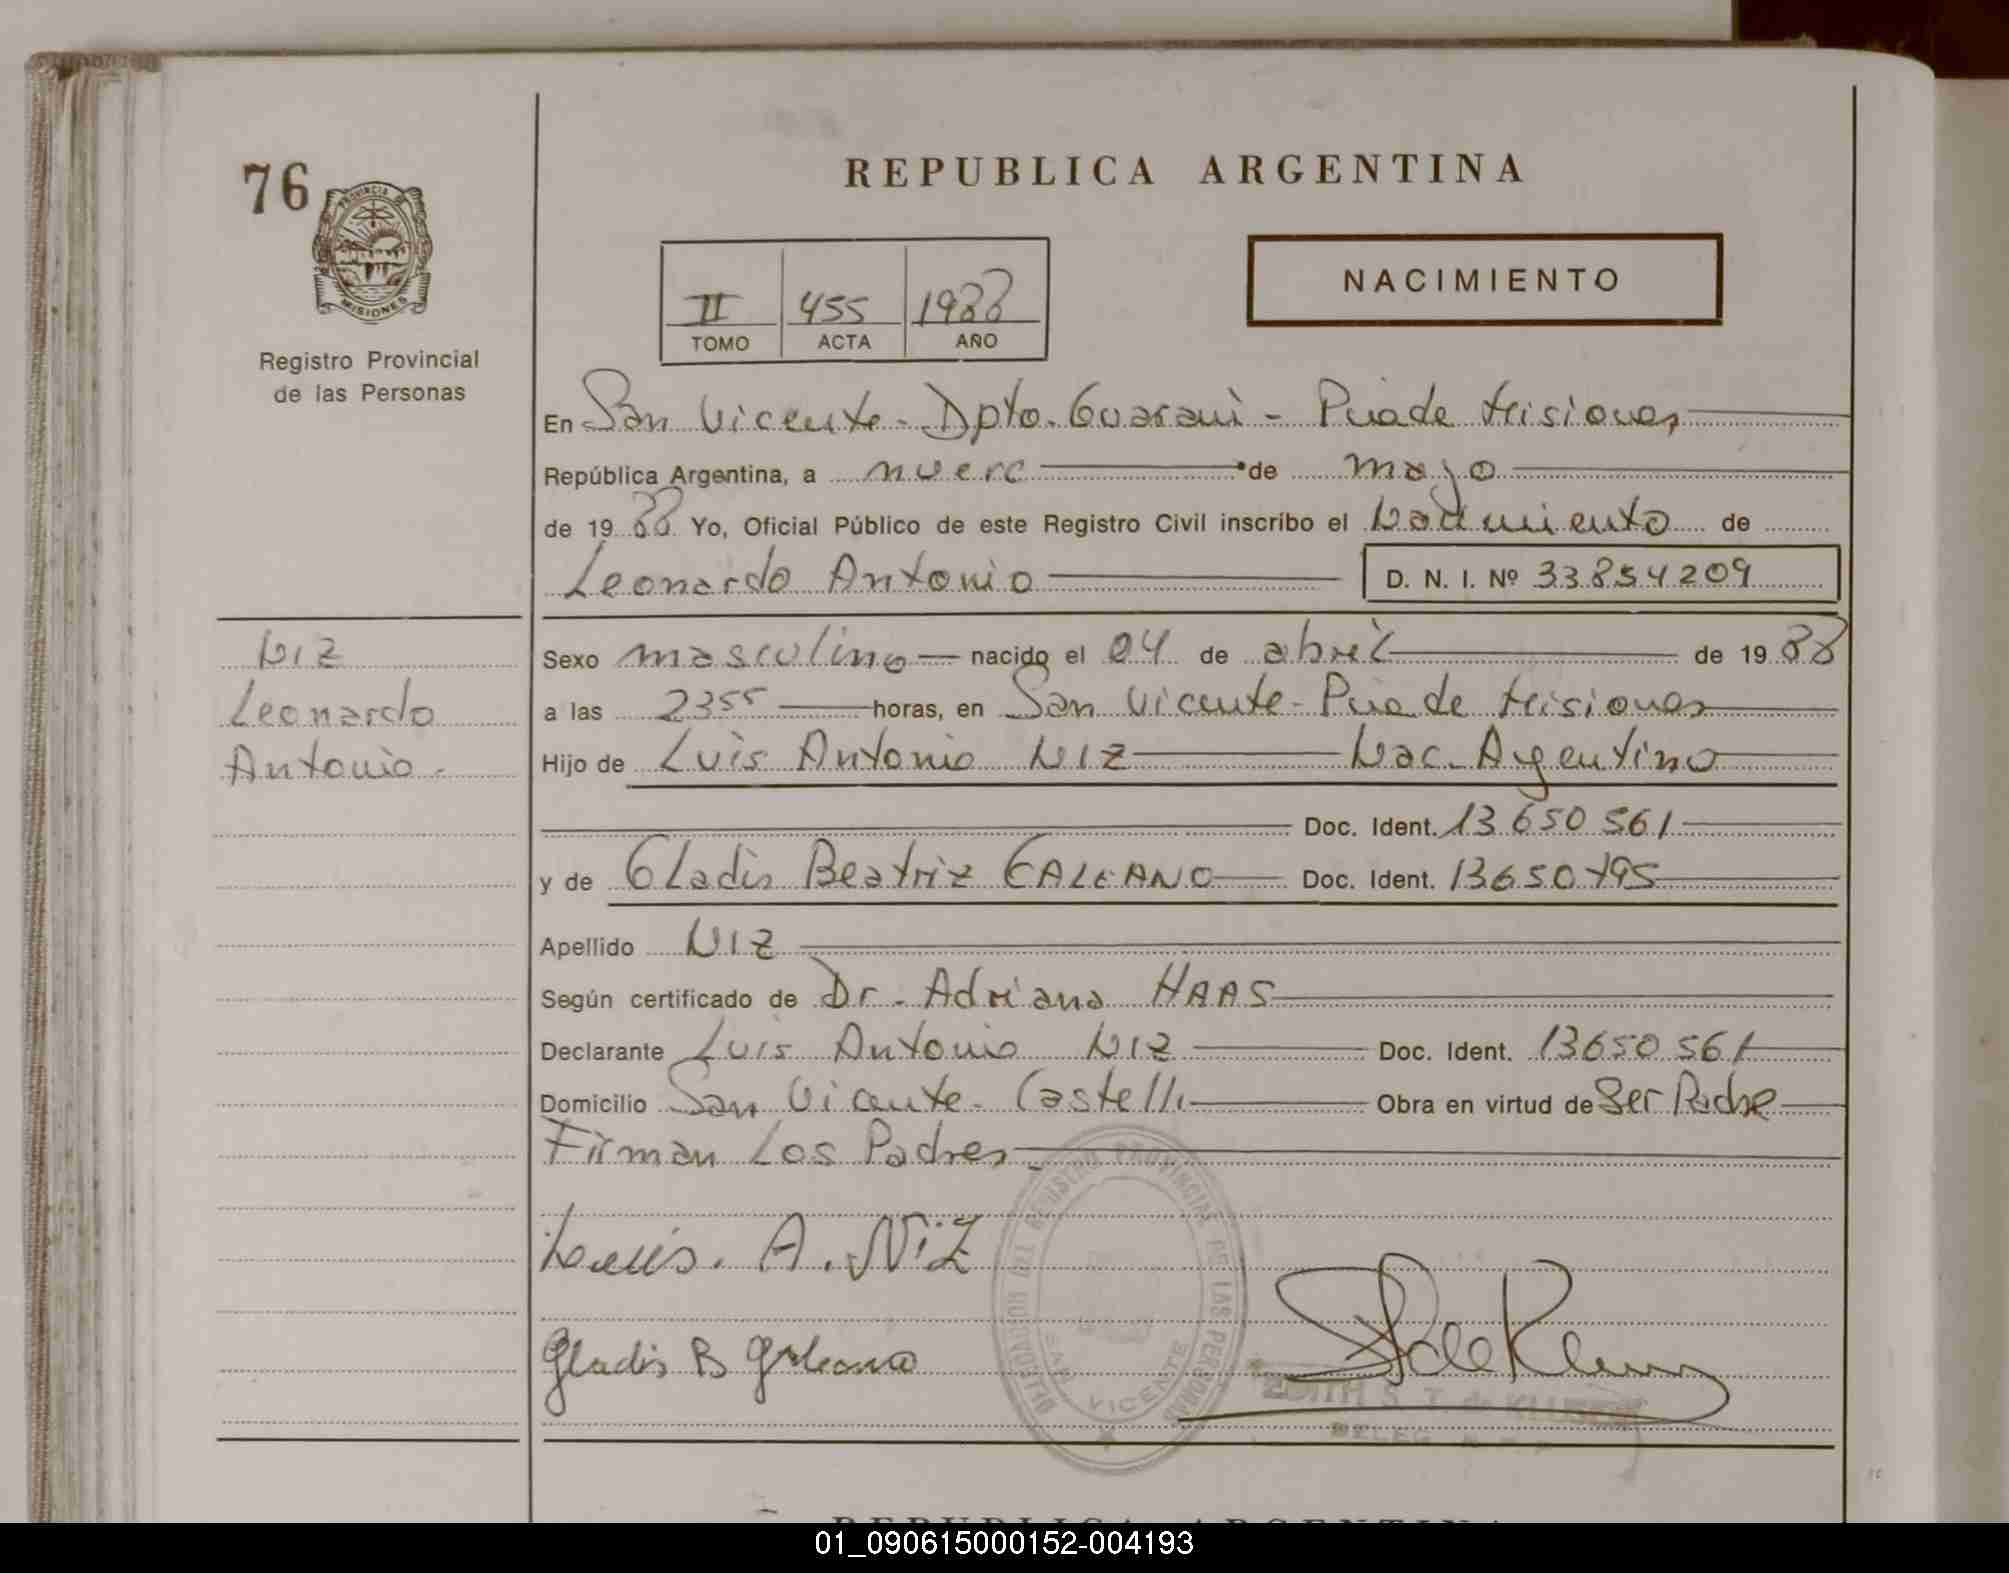 76
PROVINCIA DE
MISIONES
Registro Provincial
de las Personas
REPUBLICA ARGENTINA
NACIMIENTO
II 455 1988
TOMO ACTA AÑO
En San Vicente - Dpto. Guaraní - Pcia de Misiones
República Argentina, a nueve de mayo
de 1988 Yo, Oficial Público de este Registro Civil inscribo el Nacimiento de
Leonardo Antonio D. N. I. Nº 33854209
NIZ
Leonardo
Antonio.
Sexo masculino nacido el 04 de abril de 1988
a las 2355 horas, en San Vicente - Pcia de Misiones
Hijo de Luis Antonio NIZ Nac. Argentino
Doc. Ident. 13650561
y de Gladis Beatriz GALEANO Doc. Ident. 13650795
Apellido NIZ
Según certificado de Dr. Adriana HAAS
Declarante Luis Antonio NIZ Doc. Ident. 13650561
Domicilio San Vicente - Castelli Obra en virtud de Ser Padre
Firman Los Padres
Luis. A. NiZ
Gladis B Galeano
DELEGACION DEL REGISTRO PROVINCIAL DE LAS PERSONAS
SAN VICENTE
EDITH S. T. de
DELEG. R. P. P.
REPUBLICA ARGENTINA
01_090615000152-004193